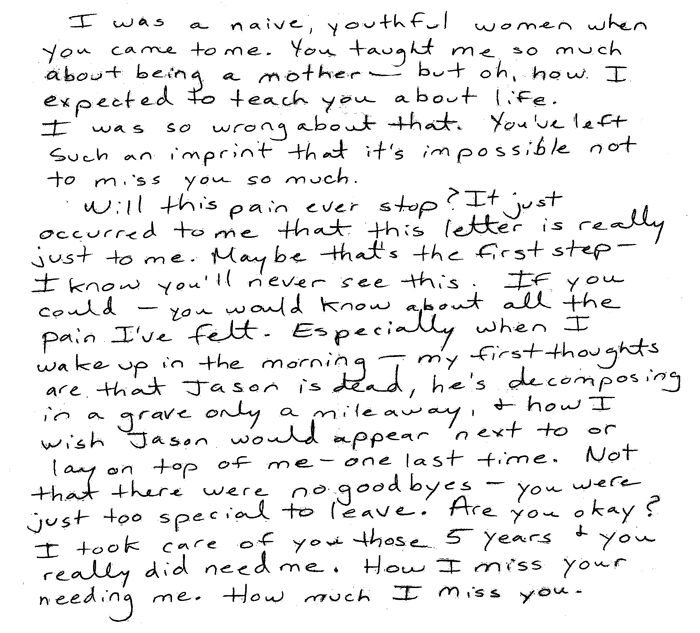 I was a naive, youthful women when
you came to me. You taught me so much
about being a mother — but oh, how I
expected to teach you about life.
I was so wrong about that. You've left
such an imprint that it's impossible not
to miss you so much.
Will this pain ever stop? It just
occurred to me that this letter is really
just to me. Maybe that's the first step —
I know you'll never see this. If you
could — you would know about all the
pain I've felt. Especially when I
wake up in the morning — my first thoughts
are that Jason is dead, he's decomposing
in a grave only a mile away, & how I
wish Jason would appear next to or
lay on top of me — one last time. Not
that there were no goodbyes — you were
just too special to leave. Are you okay?
I took care of you those 5 years & you
really did need me. How I miss your
needing me. How much I miss you.